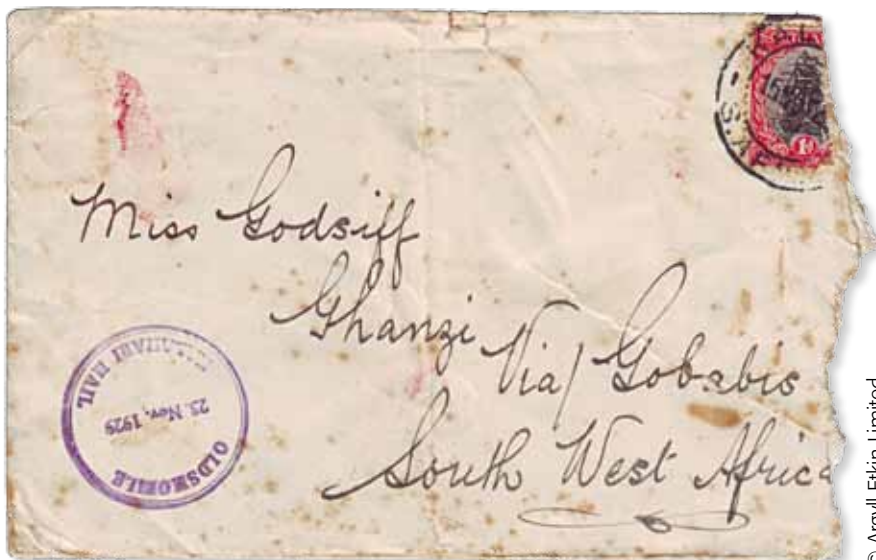 Miss Godsiff
Ghanzi
Via/ Gobabis
South West Africa
OLDSMOBILE
MAIL
23. Nov. 1929
1D
S.W.
© Argyll Etkin Limited